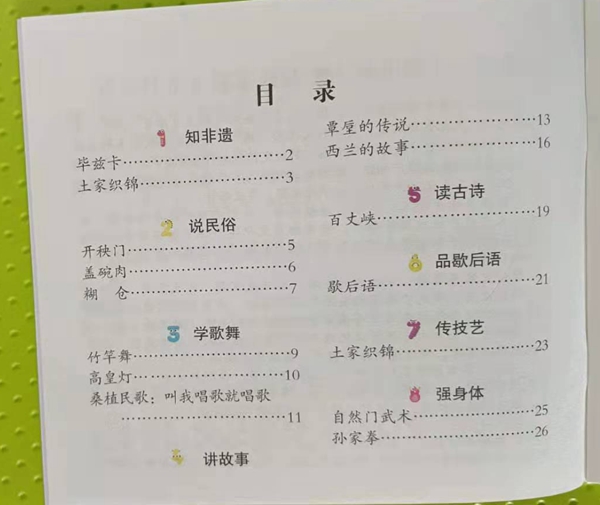 目 录
1 知非遗
毕兹卡…………………………2
土家织锦………………………3
2 说民俗
开秧门…………………………5
盖碗肉…………………………6
糊 仓…………………………7
3 学歌舞
竹竿舞…………………………9
高皇灯…………………………10
桑植民歌：叫我唱歌就唱歌
…………………………11
4 讲故事
覃垕的传说……………………13
西兰的故事……………………16
5 读古诗
百丈峡…………………………19
6 品歇后语
歇后语…………………………21
7 传技艺
土家织锦………………………23
8 强身体
自然门武术……………………25
孙家拳…………………………26